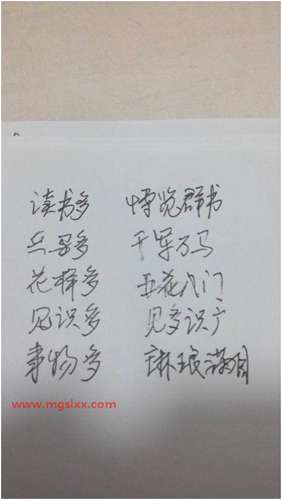 读书多 博览群书
兵马多 千军万马
花样多 五花八门
见识多 见多识广
事物多 琳琅满目
www.mgsixx.com